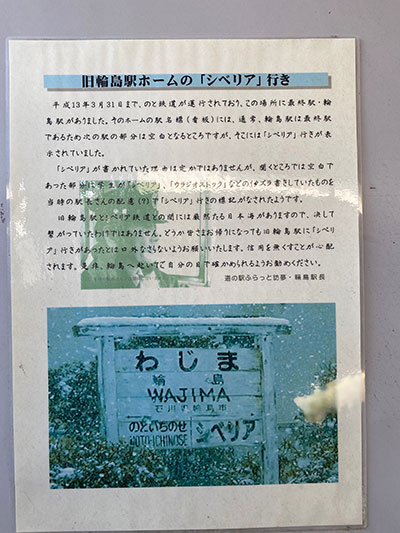 旧輪島駅ホームの「シベリア」行き
平成13年3月31日まで、のと鉄道が運行されており、この場所に最終駅・輪
島駅がありました。そのホームの駅名標(看板)には、通常、輪島駅は最終駅
であるため次の駅の部分は空白となるところですが、そこには「シベリア」行きが表
示されていました。
「シベリア」が書かれていた理由は定かではありませんが、聞くところでは空白で
あった部分に学生が「シベリア」、「ウラジオストック」などのイタズラ書きしていたものを
当時の駅長さんの配慮(?)で「シベリア」行きの標記がなされたようです。
旧輪島駅とシベリア鉄道との間には厳然たる日本海がありますので、決して
繋がっていたわけではありません。どうか皆さまお帰りになっても旧輪島駅に「シベリ
ア」行きがあったとは口外なさらないようお願いいたします。信用を無くすことが心配
されます。是非、輪島へ赴いてご自分の目で確かめられるようお勧めください。
道の駅ふらっと訪夢・輪島駅長
わじま
輪島
WAJIMA
石川県輪島市
のといちのせ
シベリア
NOTO-ICHINOSE